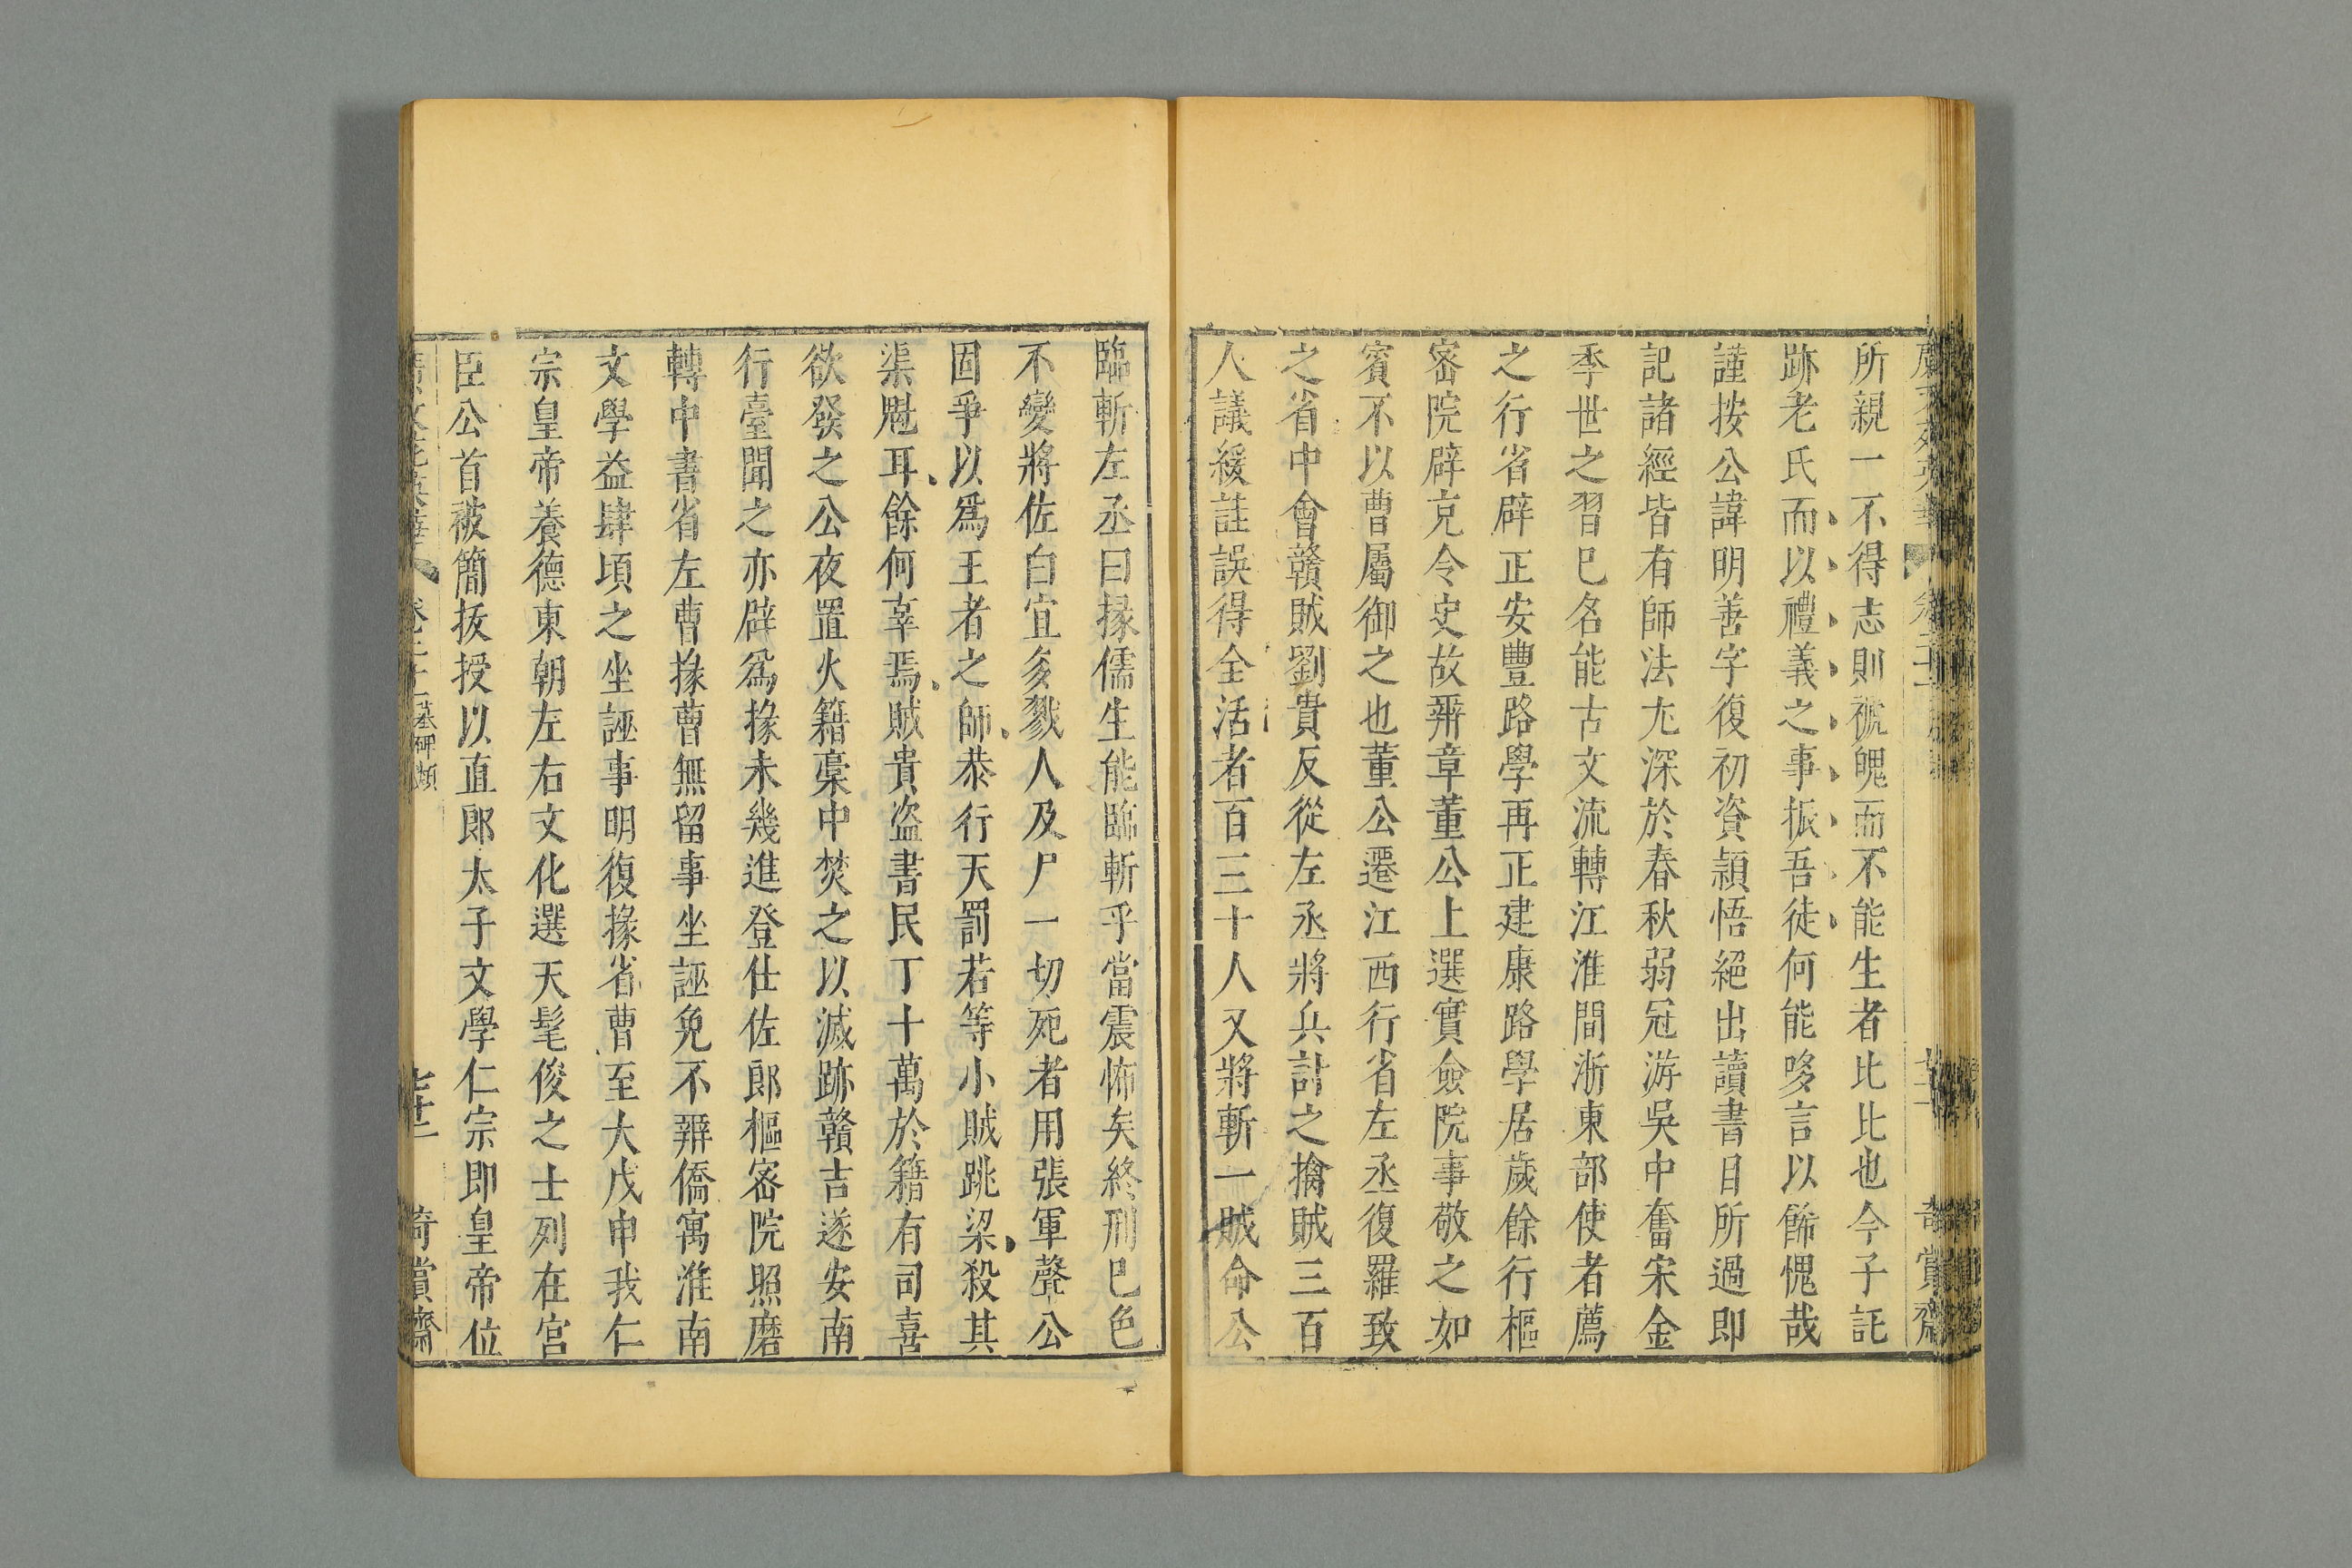 所親一不得志則褫魄而不能生者比比也今子託
跡老氏而以禮義之事振吾徒何能哆言以餙愧哉
謹按公諱明善字復初資穎悟絕出讀書目所過即
記諸經皆有師法尢深於春秋弱冠游吳中奮宋金
季世之習已名能古文流轉江淮間浙東部使者薦
之行省辟正安豐路學再正建康路學居歲餘行樞
密院辟克令史故辨章董公上選實僉院事敬之如
賓不以曹屬御之也董公遷江西行省左丞復羅致
之省中會贛賊劉貴反從左丞將兵討之擒賊三百
人議緩詿誤得全活者百三十人又將斬一賊命公
臨斬左丞曰掾儒生能臨斬乎當震怖矣終刑巳色
不變將佐白宜多戮人及尸一切死者用張軍聲公
固爭以爲王者之師恭行天罰若等小賊跳梁殺其
渠魁耳餘何辜焉賊貴盜書民丁十萬於籍有司喜
欲發之公夜置火籍稾中焚之以滅跡贛吉遂安南
行臺聞之亦辟爲掾未幾進登仕佐郎樞密院照磨
轉中書省左曹掾曹無留事坐誣免不辨僑寓淮南
文學益肆頃之坐誣事明復掾省曹至大戊申我仁
宗皇帝養德東朝左右文化選天髦俊之士列在宮
臣公首被簡拔授以直郎太子文學仁宗即皇帝位
墓碑類
奇賞齋